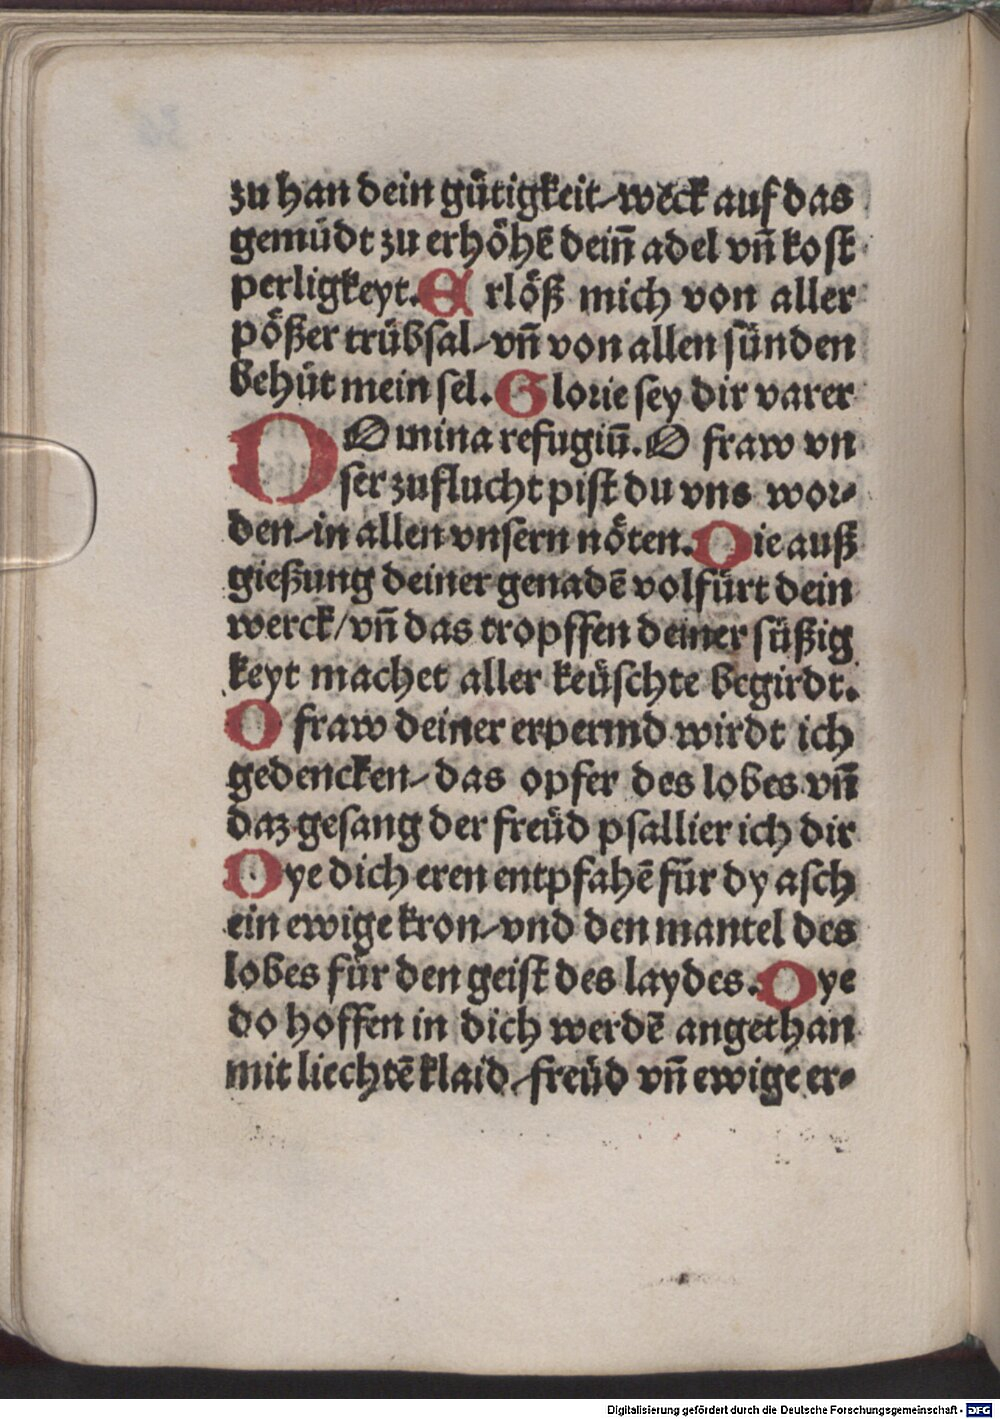 zu han dein gütigkeit/weck auf das
gemüdt zu erhöhē deiñ adel vñ kost
perligkeyt. Erlöß mich von aller
pößer trübsal/vñ von allen sünden
behüt mein sel. Glorie sey dir varer
O Omina refugiū. O fraw vn
ser zuflucht pist du vns wor⸗
den/in allen vnsern nöten. Die auß
gießung deiner genadē volfürt dein
werck/vñ das tropffen deiner süßig
keyt machet aller keüschte begirdt.
O fraw deiner erpermd wirdt ich
gedencken/das opfer des lobes vñ
daz gesang der freüd psallier ich dir
Dye dich eren entpfahē für dy asch
ein ewige kron/vnd den mantel des
lobes für den geist des laydes. Dye
do hoffen in dich werdē angethan
mit liechtē klaid/freüd vñ ewige er⸗
Digitalisierung gefördert durch die Deutsche Forschungsgemeinschaft - DFG